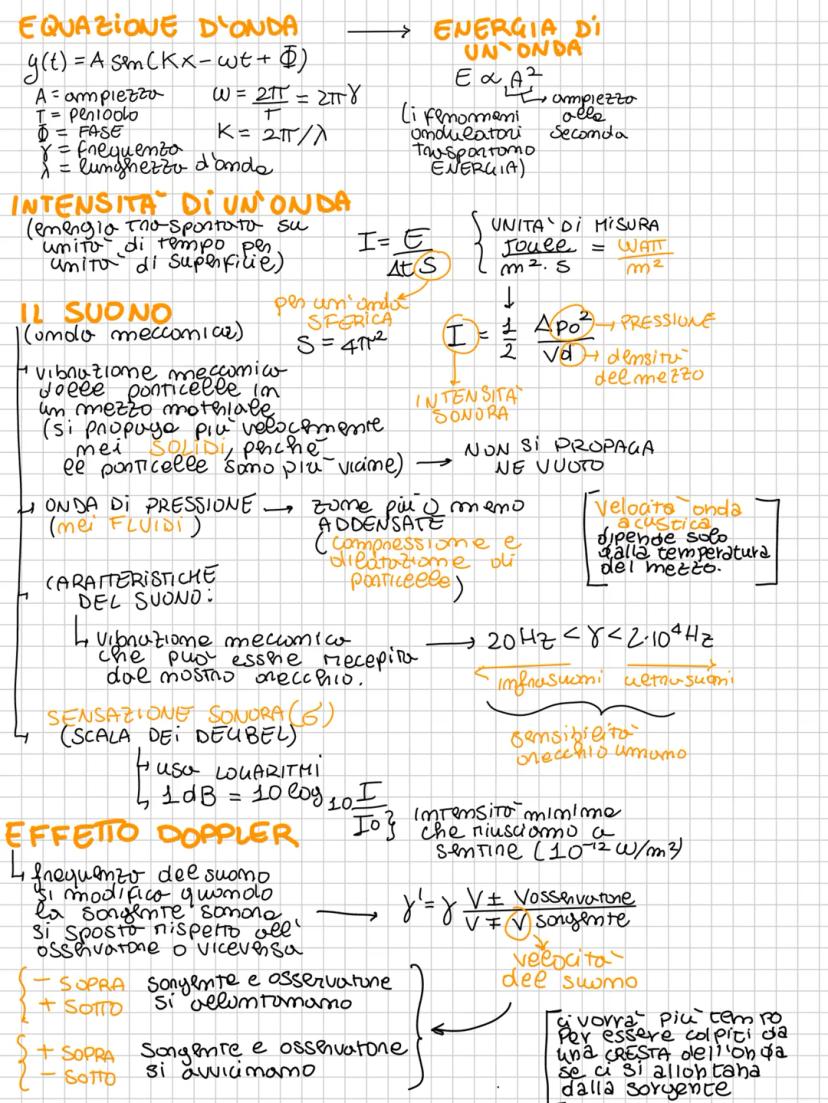 EQUAZIONE D'ONDA → ENERGIA DI UN'ONDA
y(t) = A sen(Kx - ωt + Φ)
A = ampiezza
T = periodo
Φ = FASE
γ = frequenza
λ = lunghezza d'onda
ω = 2π/T = 2πγ
K = 2π/λ
E ∝ A²
→ ampiezza alla seconda
(i fenomeni
ondulatori
trasportano
ENERGIA)
INTENSITA' DI UN'ONDA
(energia trasportata su
unità di tempo per
unità di superficie)
I = E / Δt S
per un'onda
SFERICA
S = 4πr²
UNITA' DI MISURA
Joule / m² · s = WATT / m²
I = 1/2 Δpo² / Vd
→ PRESSIONE
→ densità
del mezzo
INTENSITA'
SONORA
IL SUONO
(onda meccanica)
vibrazione meccanica
delle particelle in
un mezzo materiale
(si propaga più velocemente
nei SOLIDI, perchè
le particelle sono più vicine) → NON SI PROPAGA
NE VUOTO
ONDA DI PRESSIONE → zone più o meno
(nei FLUIDI)
ADDENSATE
(compressione e
dilatazione di
particelle)
velocità onda
acustica
dipende solo
dalla temperatura
del mezzo.
CARATTERISTICHE
DEL SUONO:
vibrazione meccanica → 20 Hz < γ < 2·10⁴ Hz
che può essere recepita
dal nostro orecchio.
infrasuoni ultrasuoni
sensibilità
orecchio umano
SENSAZIONE SONORA (σ)
(SCALA DEI DECIBEL)
usa LOGARITMI
1 dB = 10 log₁₀ I / I₀
intensità minime
che riusciamo a
sentire (10⁻¹² W/m²)
EFFETTO DOPPLER
frequenza del suono
si modifica quando
la sorgente sonora
si sposta rispetto all'
osservatore o viceversa
→ γ' = γ V ± Vosservatore / V ∓ V sorgente
velocità
del suono
- SOPRA
+ SOTTO
sorgente e osservatore
si allontanano
+ SOPRA
- SOTTO
sorgente e osservatore
si avvicinano
ci vorrà più tempo
per essere colpiti da
una CRESTA dell'onda
se ci si allontana
dalla sorgente